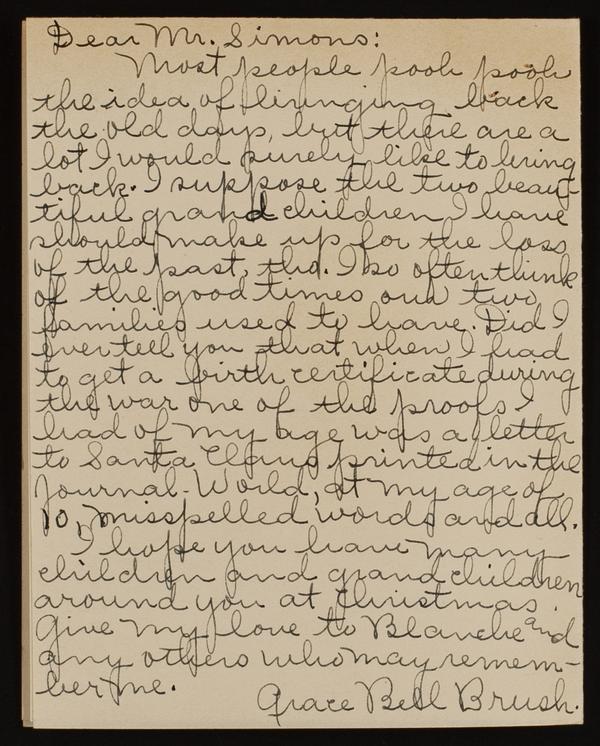 Dear Mr. Simons:
Most people pooh pooh
the idea of bringing back
the old days, but there are a
lot I would surely like to bring
back. I suppose the two beau-
tiful grandchildren I have
should make up for the loss
of the past, tho. I so often think
of the good times our two
families used to have. Did I
ever tell you that when I had
to get a birth certificate during
the war one of the proofs I
had of my age was a letter
to Santa Claus printed in the
Journal-World, at my age of
10, misspelled words and all.
I hope you have many
children and grandchildren
around you at Christmas.
Give my love to Blanche and
any others who may remem-
ber me.
Grace Bell Brush.